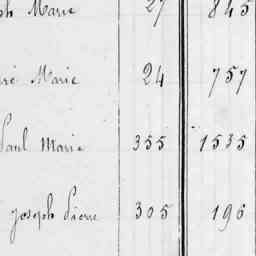 ph Marie 27 845
ré Marie 24 757
Paul Marie 355 1535
Joseph Pierre 305 196